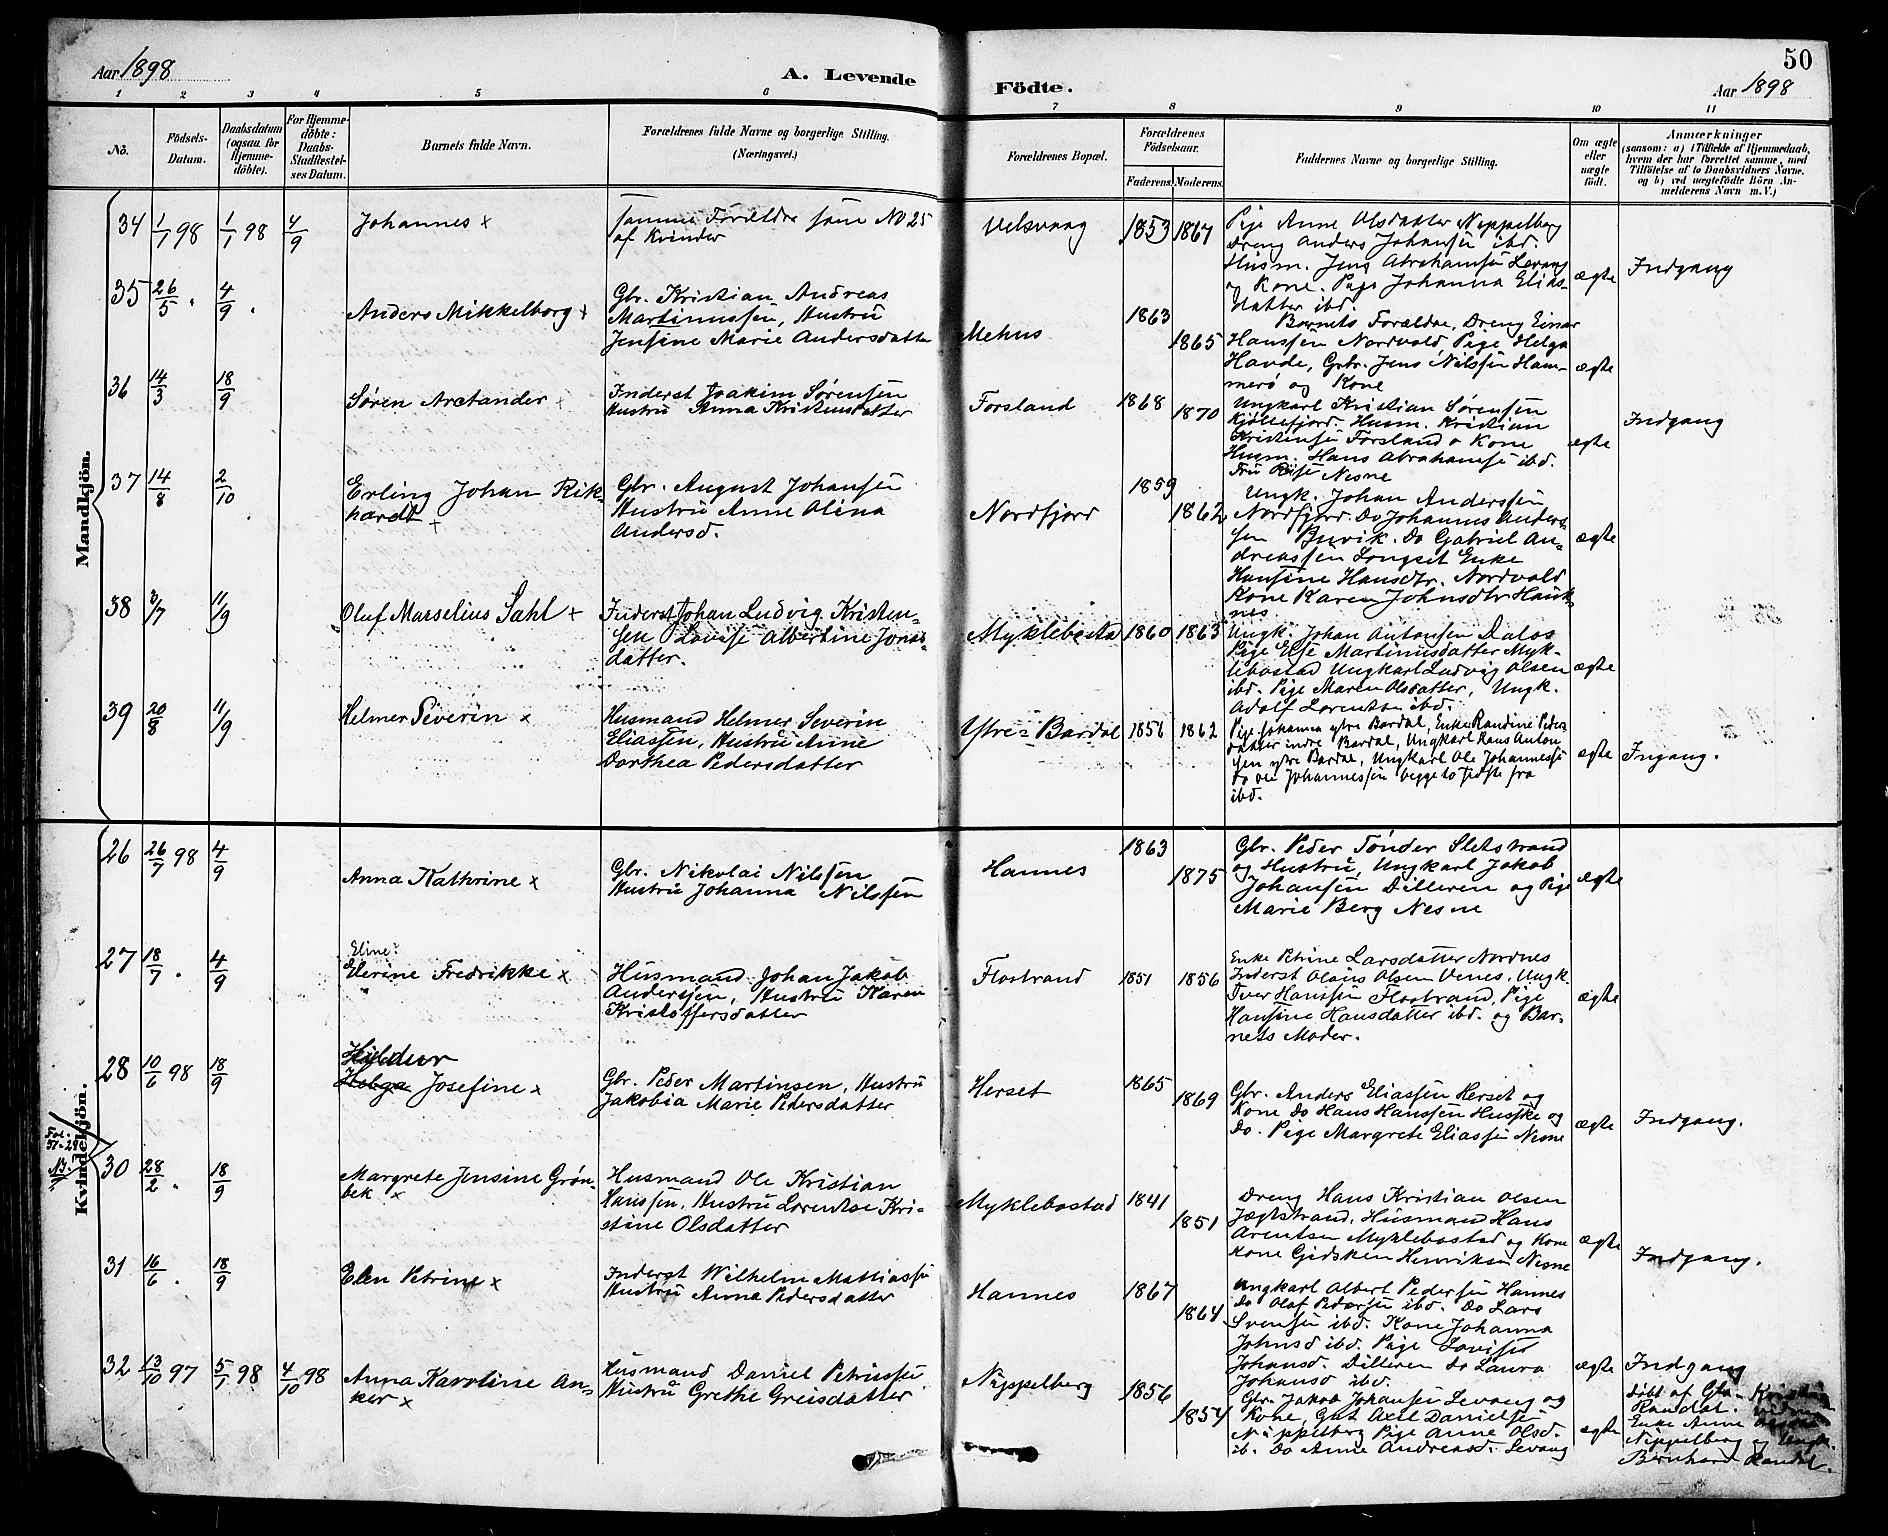 50
Aar 1898
A. Levende
Födte.
Aar 1898
1 2 3 4 5 6 7 8 9 10 11
No.
Födsels-
Datum.
Daabsdatum
(ogsaa for
Hjemme-
döbte).
For Hjemme-
döbte:
Daabs-
Stadfæstel-
ses Datum.
Barnets fulde Navn.
Forældrenes fulde Navne og borgerlige Stilling.
(Næringsvei.)
Forældrenes Bopæl.
Forældrenes
Födselsaar.
Faderens. Moderens.
Faddernes Navne og borgerlige Stilling.
Om ægte
eller
uægte
födt.
Anmærkninger
(saasom: a) i Tilfælde af Hjemmedaab,
hvem der har forrettet samme, med
Tilföielse af to Daabsvidners Navne,
og b) ved uægtefödte Börn An-
melderens Navn m.V.)
Mandkjön.
34 1/7 98 1/7 98 4/9 Johannes x
Samme Forældre som No 25
af Kvinder
Velsvaag 1853 1867
Pige Anne Olsdatter Nippelberg
Dreng Anders Johansen ibd.
Husm. Jens Abrahamsen Levang
og Kone. Pige Johanna Elias-
datter ibd.
ægte Indgang
35 26/5 " 4/9 " Anders Mikkelborg x
Gbr. Kristian Andreas
Martinussen, Hustru
Jensine Marie Andersdatter
Mehus 1863 1865
Barnets Forældre, Dreng Einar
Hanssen Nordvold Pige Helga
Havde, Grbr. Jens Nilssen Ham-
merø og Kone
ægte
36 14/3 18/9 Søren Arctander x
Inderst Joakim Sørensen
Hustru Anna Kristensdatter
Forsland 1868 1870
Ungkarl Kristian Sørensen
Kjøllefjord. Husm. Kristian
Kristensen Forsland o Kone
Husm. Hans Abrahamsen ibd.
Fru Nesne
ægte Indgang
37 14/8 2/10 Erling Johan Rik-
hardt x
Gbr. August Johansen
Hustru Anne Olina
Andersd.
Nordfjord 1859 1862
Ungk. Johan Anderssen
Nordfjord. Do Johannes Anders-
sen Buvik. Do Gabriel An-
dreassen Longset Enke
Hansine Hansdtr. Nordvold
Kone Karen Johnsdtr Hauk-
nes
ægte
38 3/7 11/9 Oluf Marselius Dahl x
Inderst Johan Ludvig Kristen-
sen Lovise Albertine Jonas-
datter.
Myklebosta 1860 1863
Ungk. Johan Antonsen Dalos
Pige Else Martinusdatter Myk-
lebostad Ungkarl Ludvig Olsen
ibd. Pige Maren Olsdatter, Ungk.
Adolf Lorentsen ibd.
ægte
39 20/8 11/9 Helmer Severin x
Husmand Helmer Severin
Eliassen, Hustru Anne
Dorthea Pedersdatter
Ytre-Bardal 1856 1862
Pige Johanna ytre Bardal, Enke Randine Peders-
datter indre Bardal, Ungkarl Hans Anton-
sen ytre Bardal, Ungkarl Ole Johannessen
Do Ole Johannessen begge to sidste fra
ibd.
ægte Ingang.
Kvindekjön.
26 26/7 98 4/9 Anna Kathrine x
Gbr. Nikolai Nilssen
Hustru Johanna Nilssen
Hannes 1863 1875
Gbr. Peder Tønder Sletstrand
og Hustru, Ungkarl Jakob
Johansen Dilleren og Pige
Marie Berg Nesne
ægte
27 18/7 " 4/9
Eline?
Elerine Fredrikke x
Husmand Johan Jakob
Anderssen, Hustru Karen
Kristoffersdatter
Flostrand 1851 1856
Enke Petrine Larsdatter Nordnes
Inderst Olaus Olsen Venes. Ungk.
Iver Hanssen Flostrand. Pige
Hansine Hansdatter ibd. og Bar-
nets Moder.
ægte
28 10/6 98 18/9
Hildur
Helga Josefine x
Gbr. Peder Martinsen, Hustru
Jakobia Marie Pedersdatter
Herset 1865 1869
Gbr. Anders Eliassen Herset og
Kone Do Hans Hanssen Husske og
Do. Pige Margrete Eliassen Nesne
ægte Indgang.
30 28/2 " 18/9 Margrete Jensine Grøn-
bek x
Husmand Ole Kristian
Hanssen, Hustru Lorentse Kri-
stine Olsdatter
Myklebostad 1841 1851
Dreng Hans Kristian Olsen
Jægtstrand, Husmand Hans
Arentsen Myklebostad og Kone
Kone Gidsken Henriksen Nesne
ægte Indgang.
31 16/6 " 18/9 Elen Petrine x
Inderst Wilhelm Mattiassen
Hustru Anna Pedersdatter
Hannes 1867 1864
Ungkarl Albert Pedersen Hannes
Do Olaf Pedersen ibd. Do Lars
Svensen ibd. Kone Johanna
Johnsd ibd. Pige Lovise
Johansd. Dilleren Do Laura
Johansd ibd.
ægte Indgang
32 13/10 97 5/7 98 4/10 98 Anna Karoline An-
ker x
Husmand Daniel Petrussen
Hustru Grethe Greisdatter
Nippelberg 1856 1857
Gbr. Jakob Johansen Levang og
Kone, Gut Axel Danielsen
Nippelberg Pige Anne Olsd.
ib. Do Anne Andreasd. Levang
ægte
Døbt af Gbr. Kristian
Randal.
Enke Anne
Nippelberg og Ungk.
Bernhard Randal.